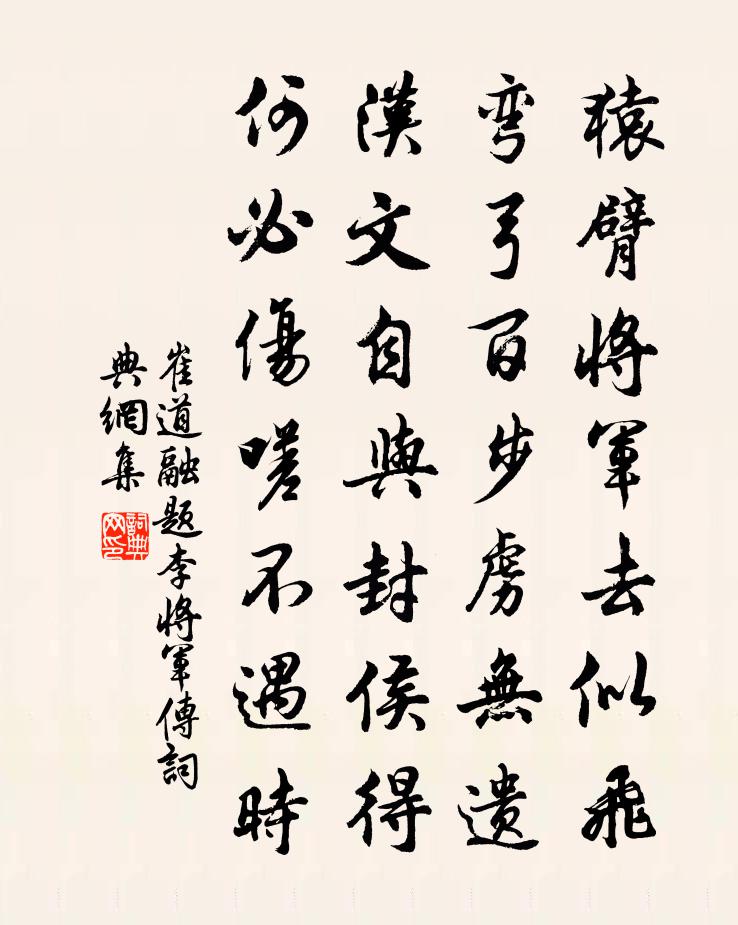 猿臂將軍去似飛
彎弓百步虜無遺
漢文自與封侯得
何必傷嗟不遇時
崔道融題李將軍傳詞
典網集
詞典
网印